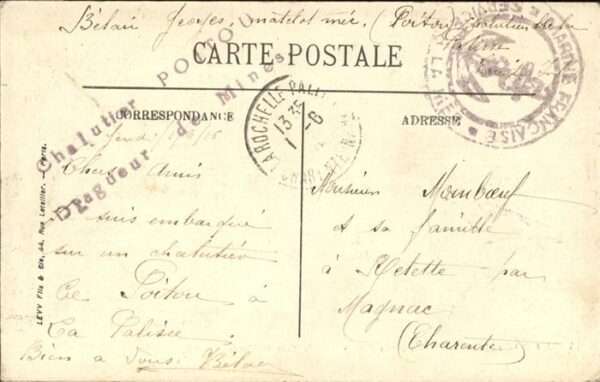 Bélair Georges, matelot méc. (Poitou)
CARTE POSTALE
Chalutier POITOU
Dragueur de Mines
MARINE FRANÇAISE
LA ROCHELLE-PALLICE
13 35
1 -6
CORRESPONDANCE
ADRESSE
Jeudi 1/6/16
Chers Amis
suis embarqué
sur un chalutier
Le Poitou à
La Palisse.
Bien à vous Bélair
Monsieur Monboeuf
et sa famille
à Retette par
Magnac
(Charente)
LEVY Fils & Cie, 44, Rue Letellier. — Paris.